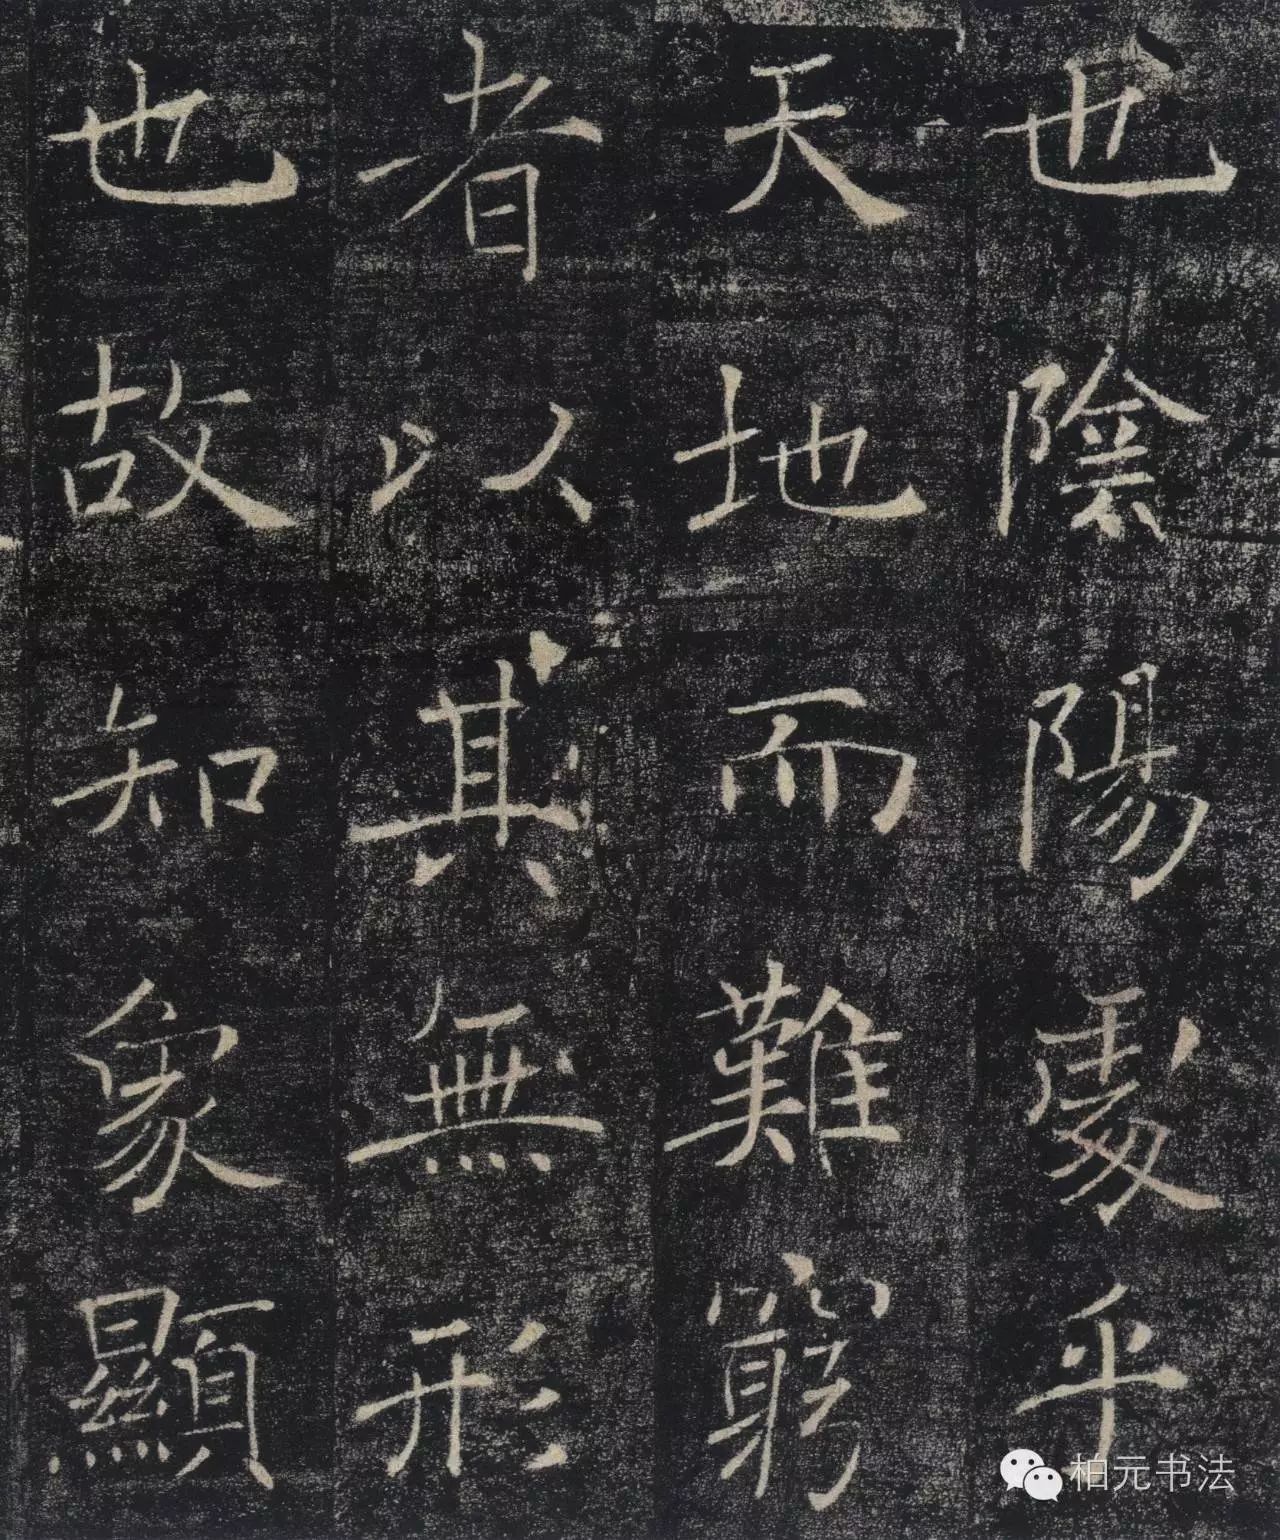 也陰陽處乎
天地而難窮
者以其無形
也故知象顯
柏元书法